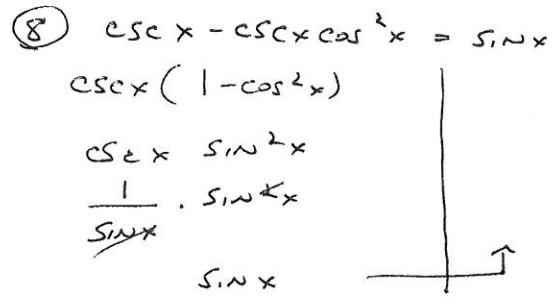 ⑧ csc x - csc x cos²x = sin x
csc x ( 1 - cos²x )
csc x sin²x
1/sin x · sin²x
sin x